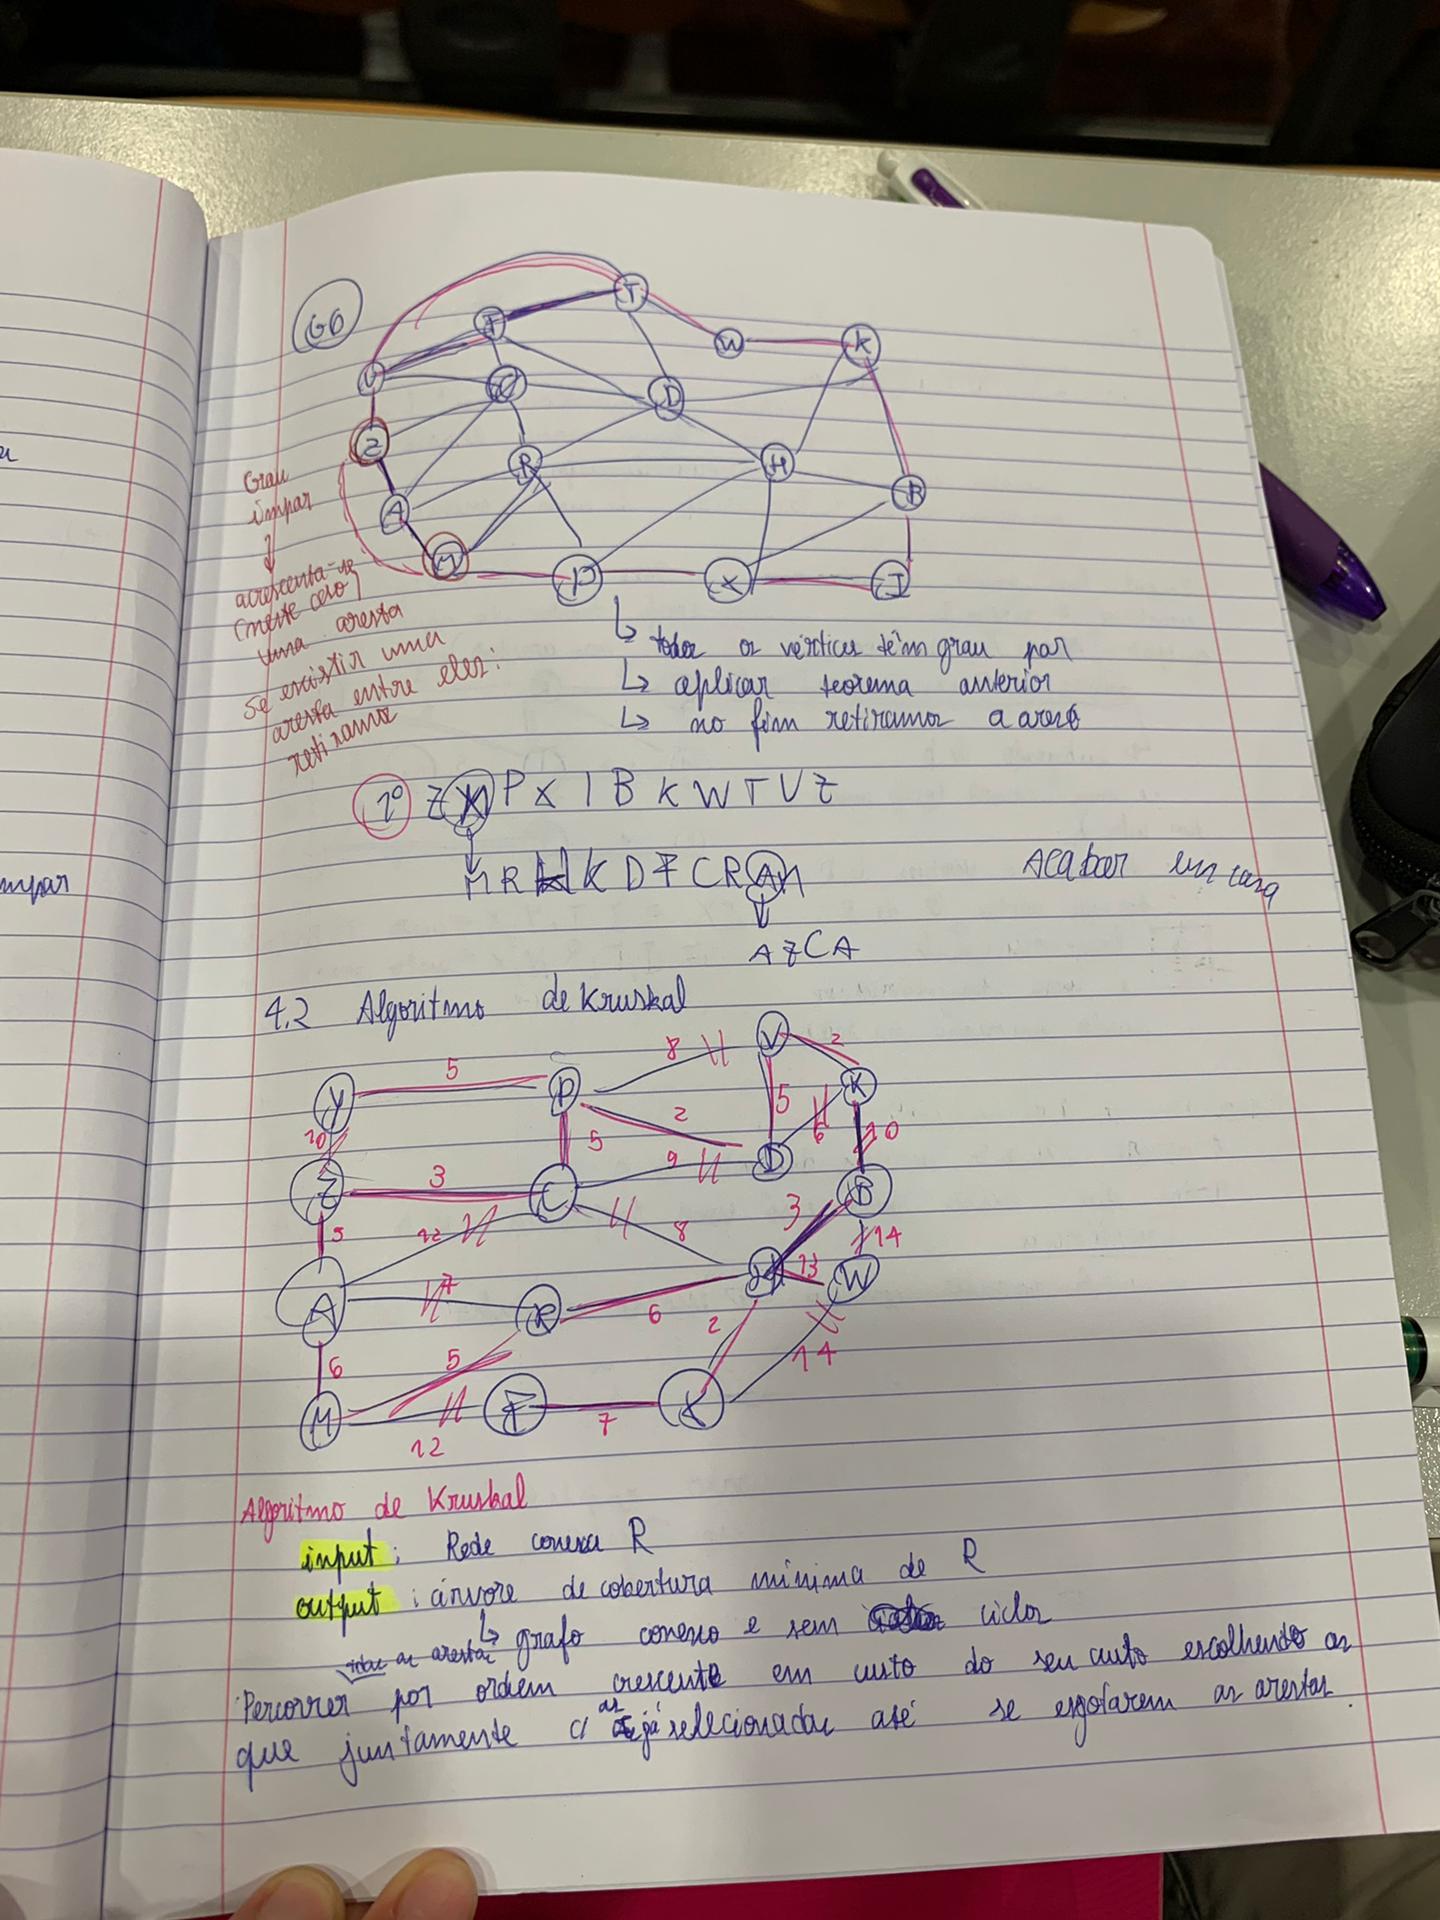 G6
T
F
W
K
V
C
D
Z
R
H
Grau
ímpar
A
B
M
P
X
I
acrescenta-se
(neste caso)
uma aresta
se existir uma
aresta entre eles:
retiramos
↳ todos os vértices têm grau par
↳ aplicar teorema anterior
↳ no fim retiramos a
1º Z M P X I B K W T V Z
M R H K D F C R A M
Acabar em casa
A Z C A
mpar
4.2 Algoritmo de Kruskal
V 2
8
Y 5 P K
2 5
10 5 6 10
9 D
Z 3 C B
3
5 12 8 14
13 W
A 7 R
6 2
6 5 14
M F X
7
12
Algoritmo de Kruskal
input: Rede conexa R
output: árvore de cobertura mínima de R
↳ grafo conexo e sem ciclos
todas as arestas
Percorrer por ordem crescente em custo do seu custo escolhendo as
que juntamente c/ as já selecionadas até se esgotarem as arestas.